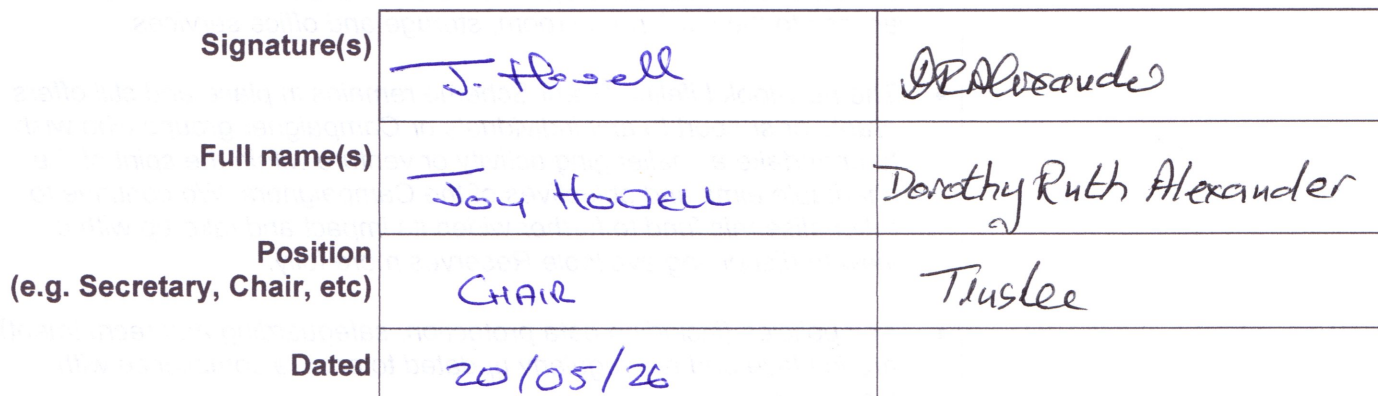 Signature(s) J. Howell DRAlexander
Full name(s) Joy Howell Dorothy Ruth Alexander
Position
(e.g. Secretary, Chair, etc) CHAIR Trustee
Dated 20/05/26